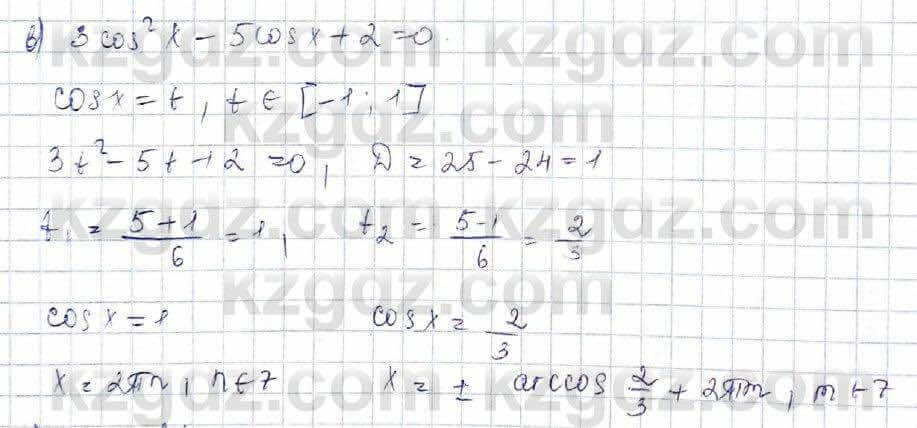 в) 3 cos² x − 5 cos x + 2 = 0
cos x = t, t ∈ [−1; 1]
3t² − 5t + 2 = 0, D = 25 − 24 = 1
t₁ = (5+1)/6 = 1, t₂ = (5−1)/6 = 2/3
cos x = 1 cos x = 2/3
x = 2πn, n ∈ Z x = ± arccos 2/3 + 2πn, n ∈ Z
kzgdz.com kzgdz.com
kzgdz.com
kzgdz.com kzgdz.com
kzgdz.com
kzgdz.com kzgdz.com